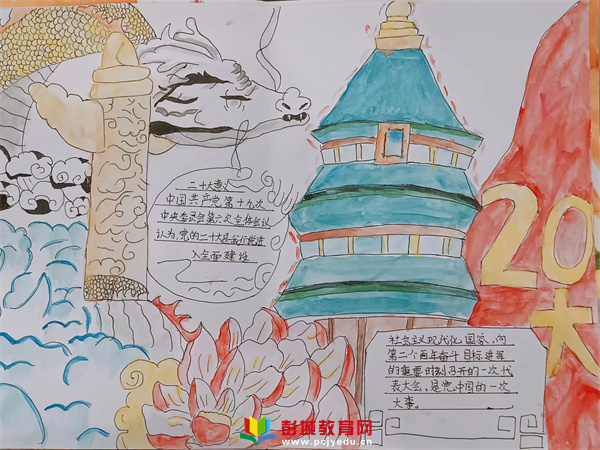 二十大意义
中国共产党第十九次
中央委员会第六次全体会议
认为,党的二十大是我们党进
入全面建设
社会主义现代化国家、向
第二个百年奋斗目标进军
的重要时刻召开的一次代
表大会,是党中国的一次
大事。
20
大
彭城教育网
www.pcjyedu.cn